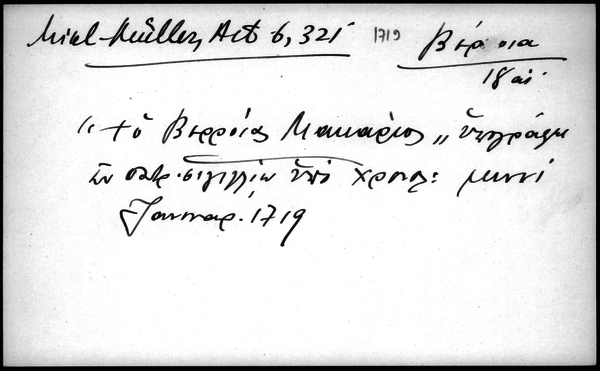 Mikl-Müller, Act 6, 321 1719 Βέροια
18 αἰ.
"+ ὁ Βερροίας Μακάριος" ὑπογράφει
ἐν πατρ. σιγιλλίῳ ὑπὸ χρονολ: μηνὶ
Ἰαννουαρ. 1719